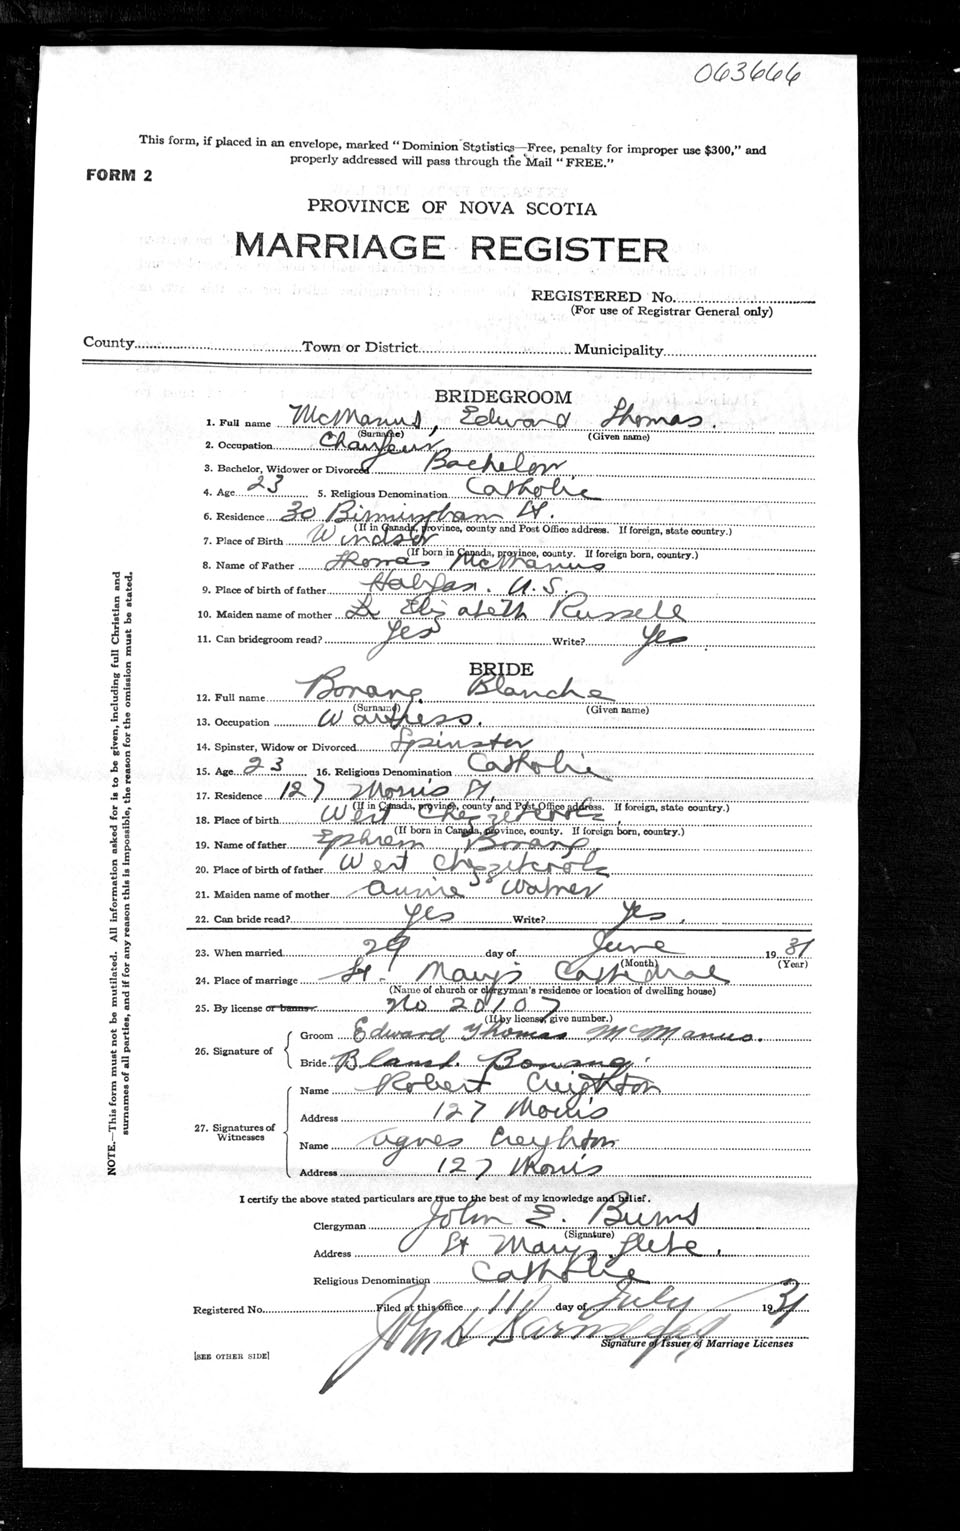 063666
This form, if placed in an envelope, marked "Dominion Statistics—Free, penalty for improper use $300," and
properly addressed will pass through the Mail "FREE."
FORM 2
PROVINCE OF NOVA SCOTIA
MARRIAGE REGISTER
REGISTERED No.
(For use of Registrar General only)
County Town or District Municipality
BRIDEGROOM
1. Full name McManus, Edward Thomas.
(Surname) (Given name)
2. Occupation Chauffeur
3. Bachelor, Widower or Divorced Bachelor
4. Age 23 5. Religious Denomination Catholic
6. Residence 30 Birmingham St.
(If in Canada, province, county and Post Office address. If foreign, state country.)
7. Place of Birth Windsor
(If born in Canada, province, county. If foreign born, country.)
8. Name of Father Thomas McManus
9. Place of birth of father Halifax. N.S.
10. Maiden name of mother Elizabeth Russell
11. Can bridegroom read? Yes Write? Yes
BRIDE
12. Full name Bonang Blanche
(Surname) (Given name)
13. Occupation Waitress.
14. Spinster, Widow or Divorced Spinster
15. Age 23 16. Religious Denomination Catholic
17. Residence 127 Morris St.
(If in Canada, province, county and Post Office address. If foreign, state country.)
18. Place of birth West Chezzetcook
(If born in Canada, province, county. If foreign born, country.)
19. Name of father Ephrem Bonang
20. Place of birth of father West Chezzetcook
21. Maiden name of mother Annie
22. Can bride read? Yes Write? Yes.
23. When married 29 day of June 1931
(Month) (Year)
24. Place of marriage St. Mary's Cathedral
(Name of church or clergyman's residence or location of dwelling house)
25. By license or banns No 20107
(If by license, give number.)
26. Signature of
Groom Edward Thomas McManus.
Bride Blanch Bonang.
27. Signatures of Witnesses
Name Robert Creighton
Address 127 Morris
Name Agnes Creighton
Address 127 Morris
I certify the above stated particulars are true to the best of my knowledge and belief.
Clergyman John E. Burns
(Signature)
Address St Marys Glebe.
Religious Denomination Catholic
Registered No. Filed at this office 11 day of July 1931
John
Signature of Issuer of Marriage Licenses
[SEE OTHER SIDE]
NOTE.—This form must not be mutilated. All information asked for is to be given, including full Christian and
surnames of all parties, and if for any reason this is impossible, the reason for the omission must be stated.